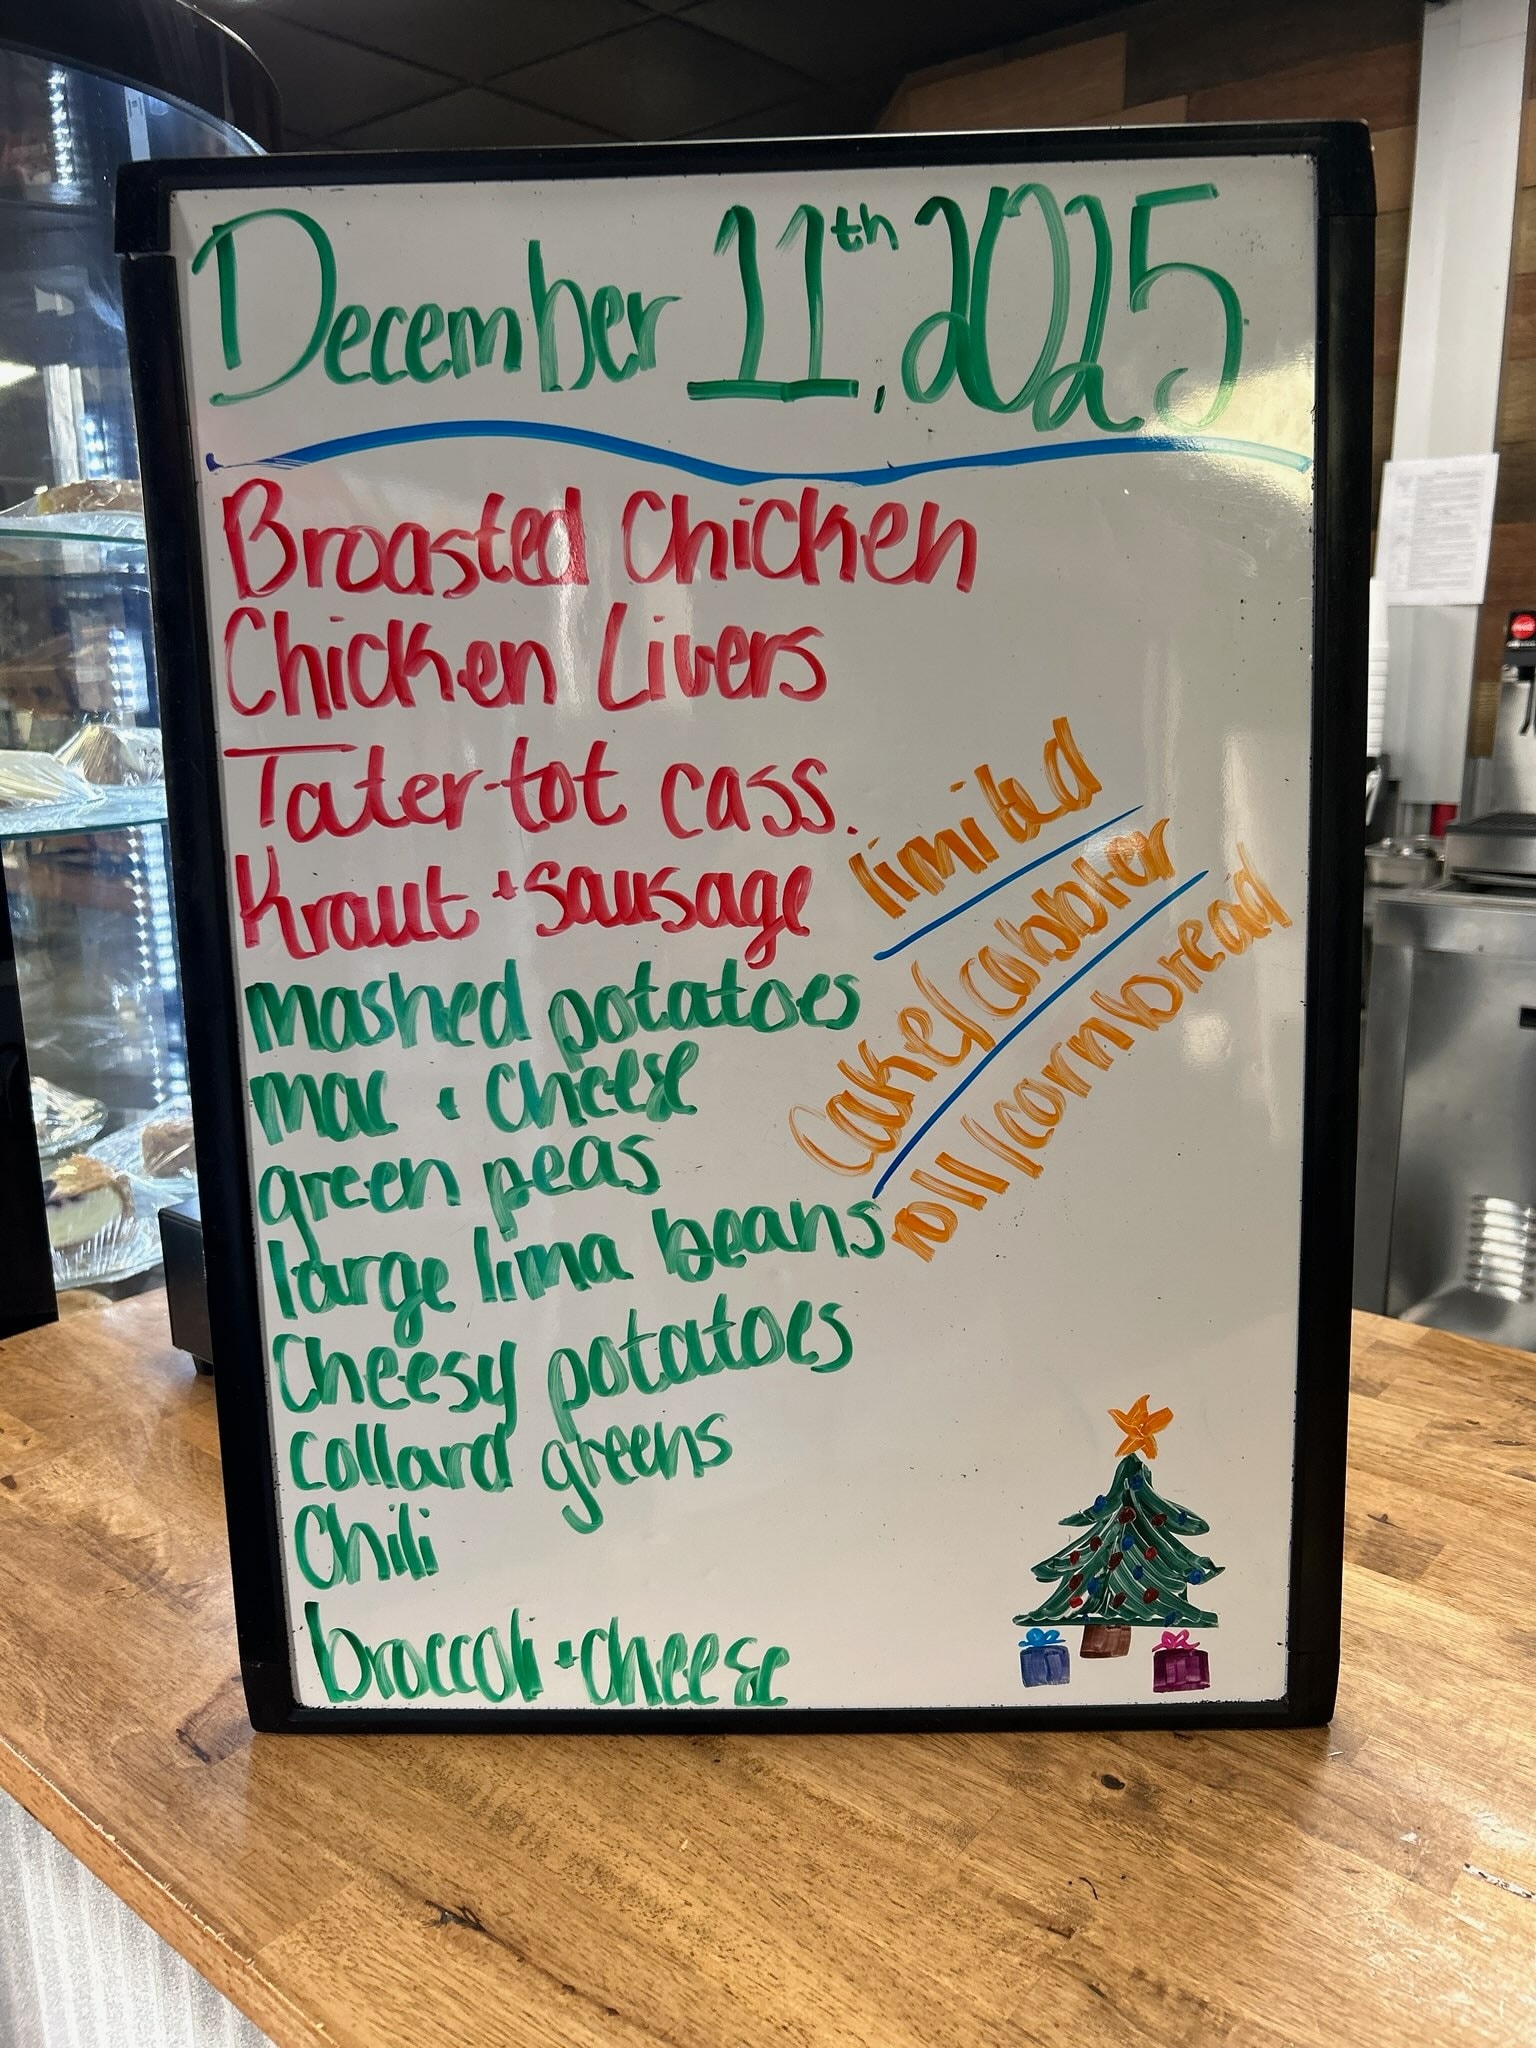 December 11th, 2025
Broasted Chicken
Chicken Livers
Tater tot cass.
Kraut + sausage
mashed potatoes
mac + cheese
green peas
large lima beans
Cheesy potatoes
collard greens
Chili
broccoli + cheese
limited
Cake/cobbler
roll/cornbread